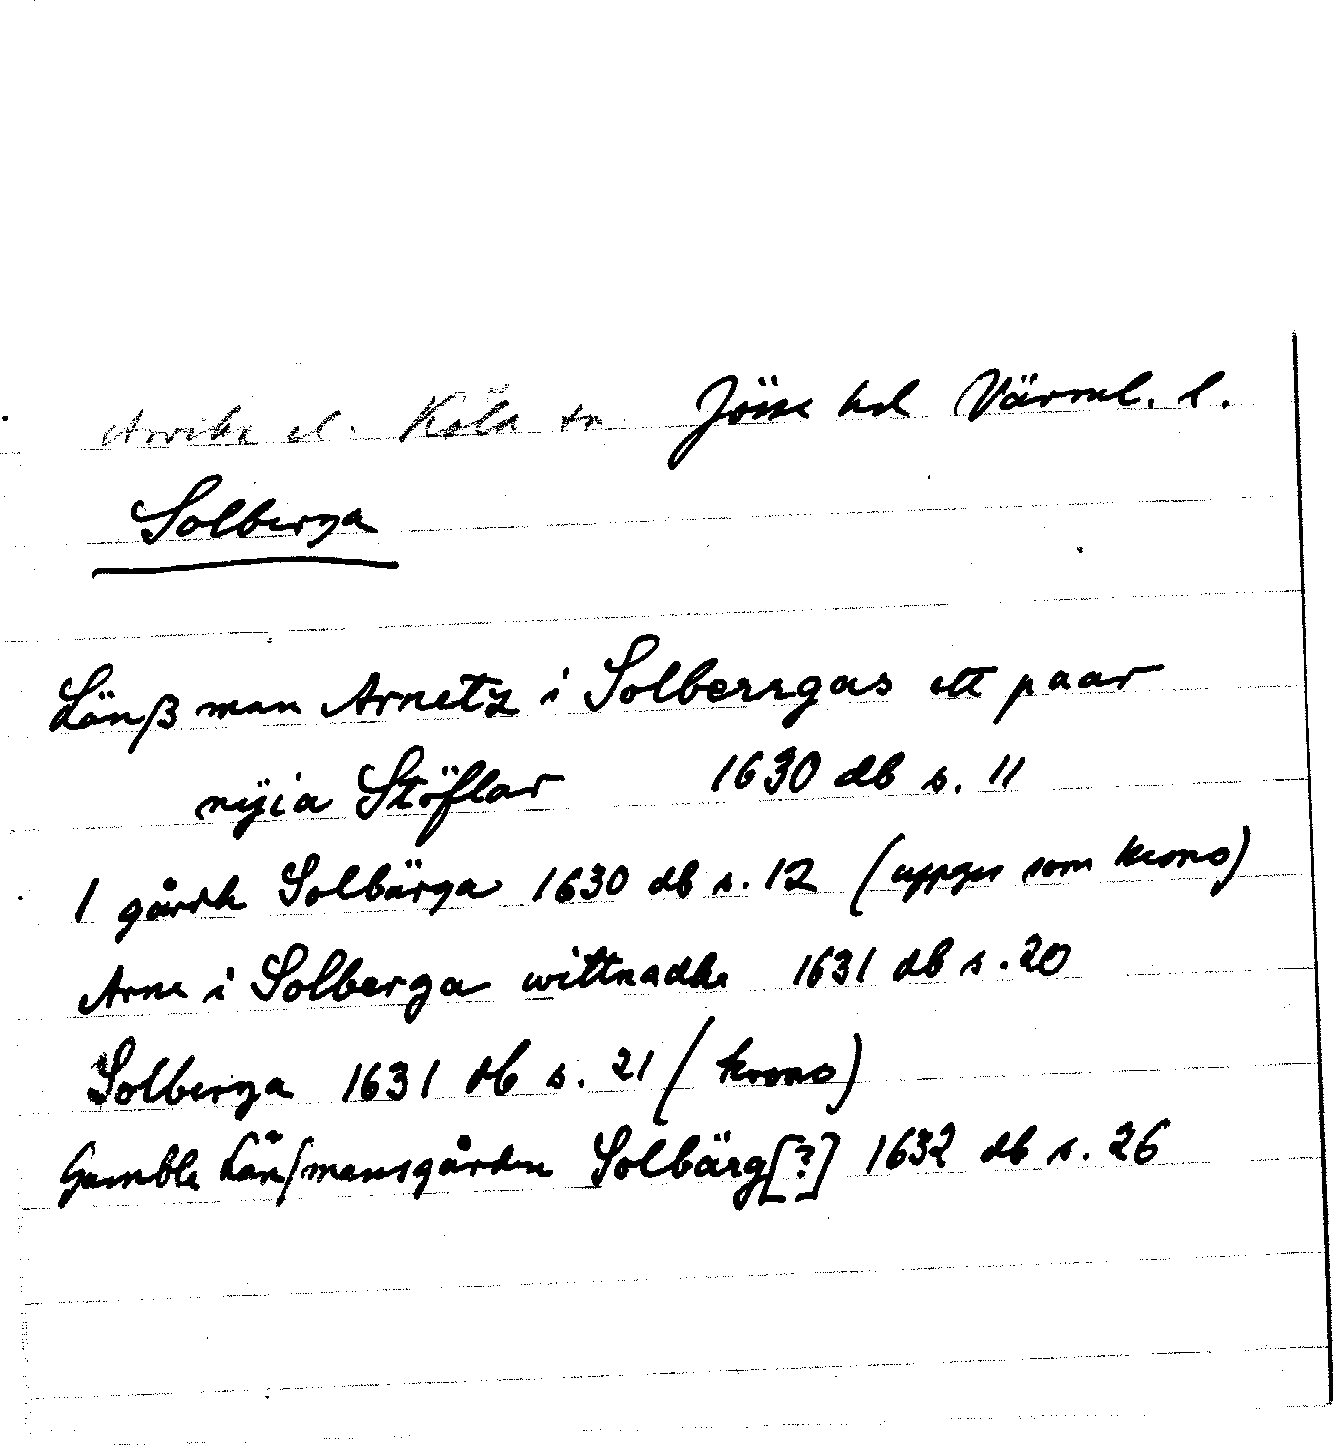 Arvika el. Köla sn Jösse hd Värml. l.
Solberga
Länß man Arnetz i Solberrgas ett paar
nÿia Stöflar 1630 db s. 11
1 gårdh Solbärga 1630 db s. 12 (uppges som krono)
Arne i Solberga wittnadhe 1631 db s. 20
Solberga 1631 db s. 21 (krono)
Gamble Länsmansgården Solbärg[?] 1632 db s. 26